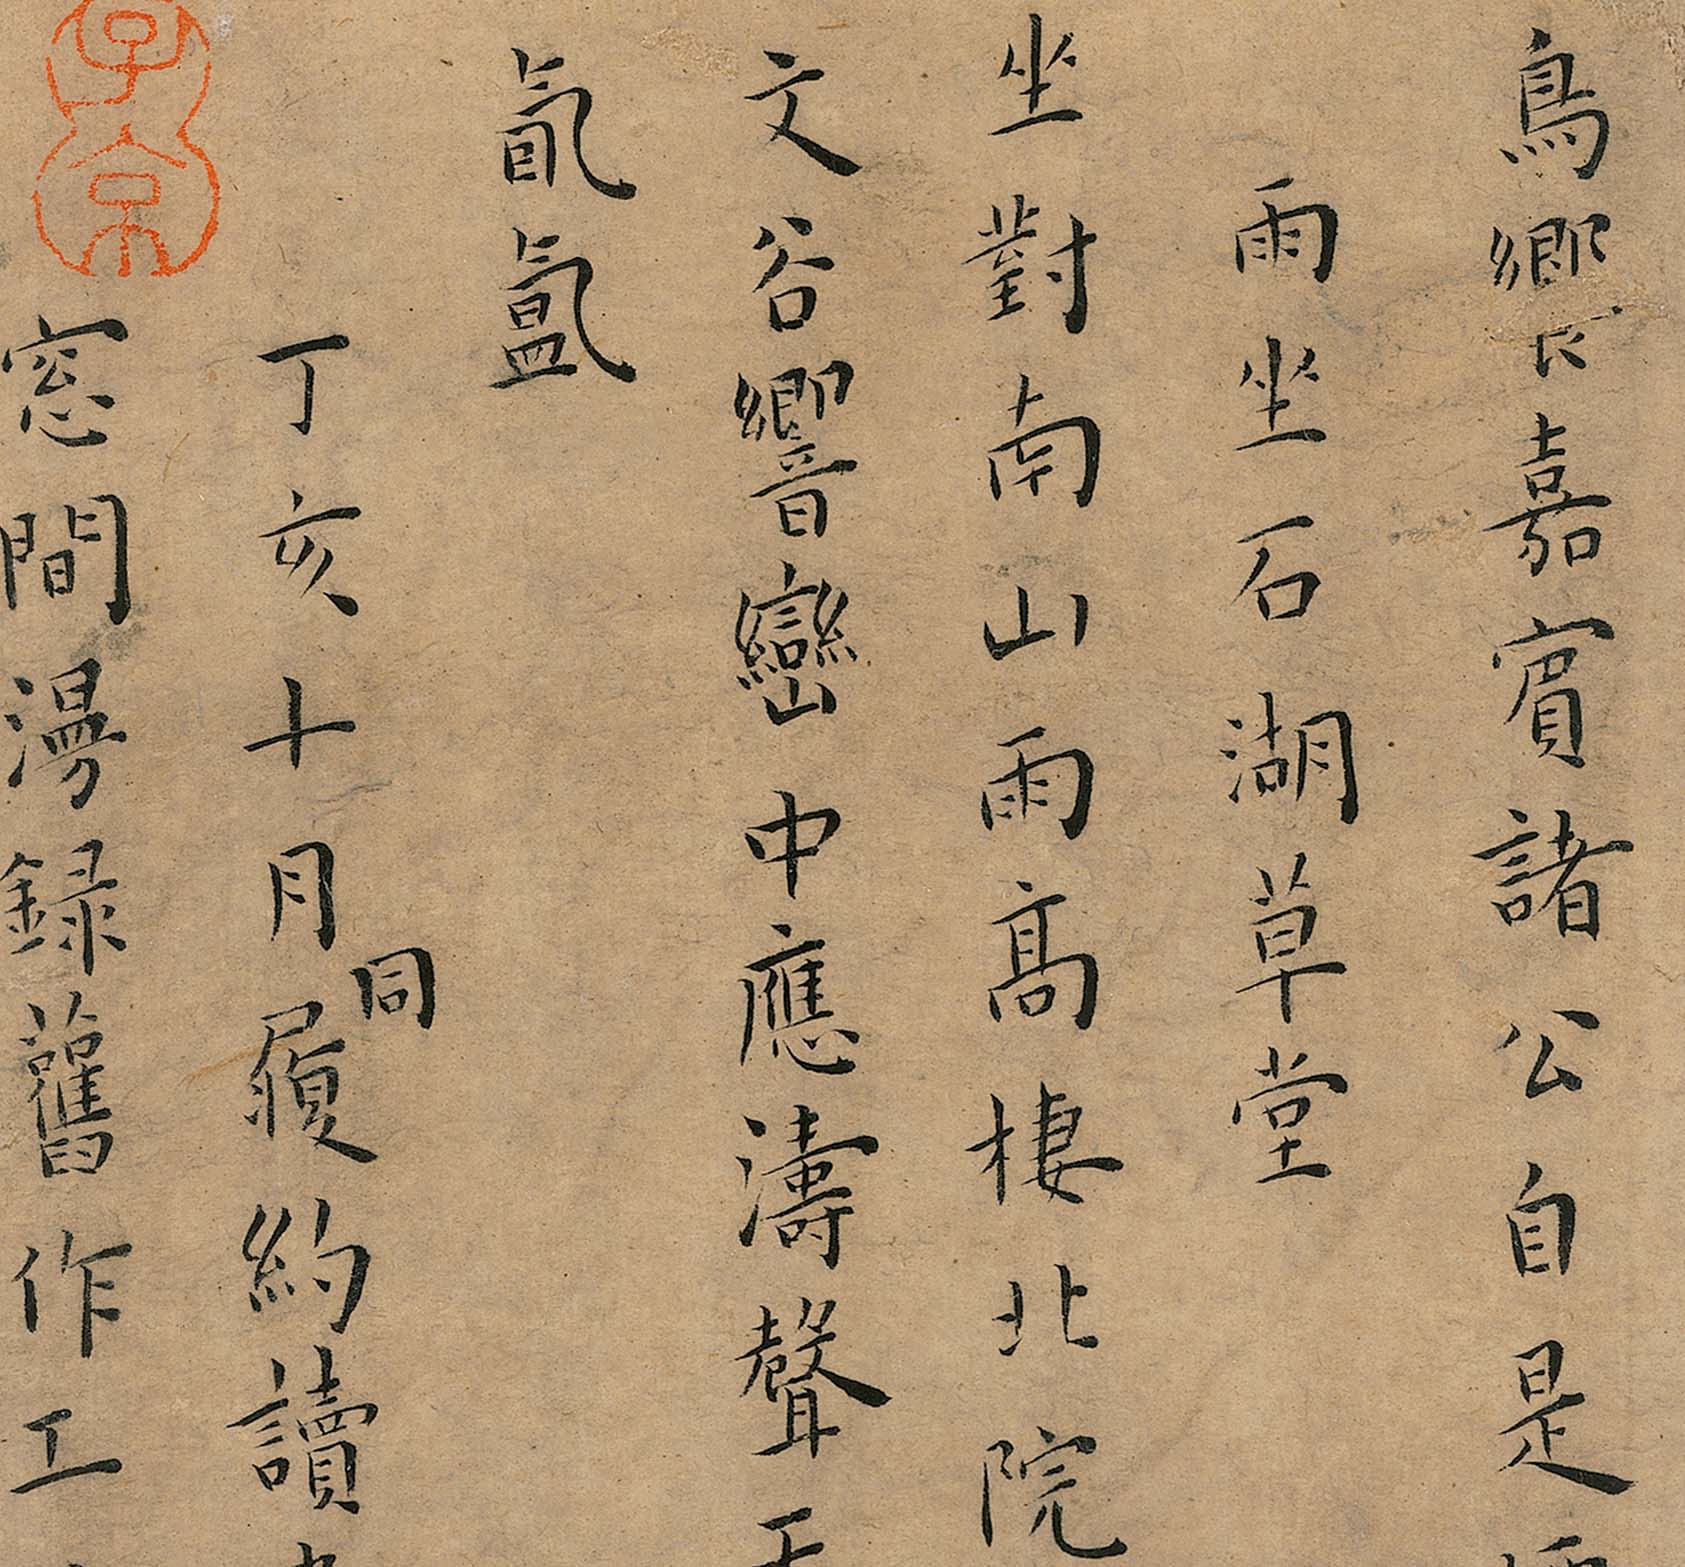 鳥饗嘉賓諸公自是
雨坐石湖草堂
坐對南山雨高棲北院
文谷響巒中應濤聲
氤氳
丁亥十月同履約讀
窓間漫録舊作工
子京